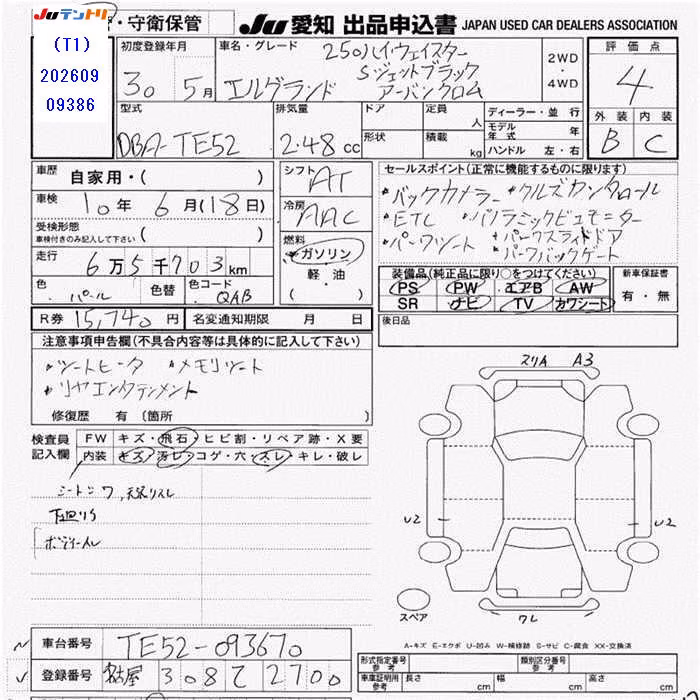 JUテントリ ・守衛保管 JU 愛知 出品申込書 JAPAN USED CAR DEALERS ASSOCIATION
(T1)
202609
09386
初度登録年月 車名・グレード 250ハイウェイスター
30 5月 エルグランド Sジェットブラック アーバンクロム
2WD・4WD
評価点
4
外装 内装
B C
型式 排気量 ドア 定員 人 ディーラー・並行
DBA-TE52 2.48cc 形状 積載 kg モデル年式 年
ハンドル 左・右
車歴 自家用・( )
車検 10年6月(18日)
受検形態
車検付きのみ記入して下さい ( )
走行 6万5千703km
色 パール 色替 色コード QAB
シフト AT
冷房 AAC
燃料 ガソリン
軽・油
( )
セールスポイント(正常に機能するものに限ります)
・バックカメラー ・クルズカントロール
・ETC ・パノラミックビュモニター
・パーワシート ・パーワスライドドア
・パーワバックゲート
装備品(純正品に限り○をつけてください) 新車保証書
PS PW エアB AW 有・無
SR ナビ TV カワシート
R券 15,740円 名変通知期限 月 日
後日品
注意事項申告欄(不具合内容等は具体的に記入して下さい)
・シートヒータ ・メモリシート
・リヤエンタテンメント
修復歴 有 〔箇所 〕
検査員記入欄 FW キズ・飛石・ヒビ割・リペア跡・X要
内装 キズ・汚レ・コゲ・穴・スレ・キレ・破レ
シートシワ,天張リスレ
下回リS
スリA A3
U2 U2
ワレ
スペア
A-キズ E-エクボ U-凹み W-補修跡 S-サビ C-腐食 XX-交換済
車台番号 TE52-093670
登録番号 名古屋 308 て 2700
形式指定番号 参考 類別区分番号 参考
車庫証明用 参考 長さ cm 幅 cm 高さ cm